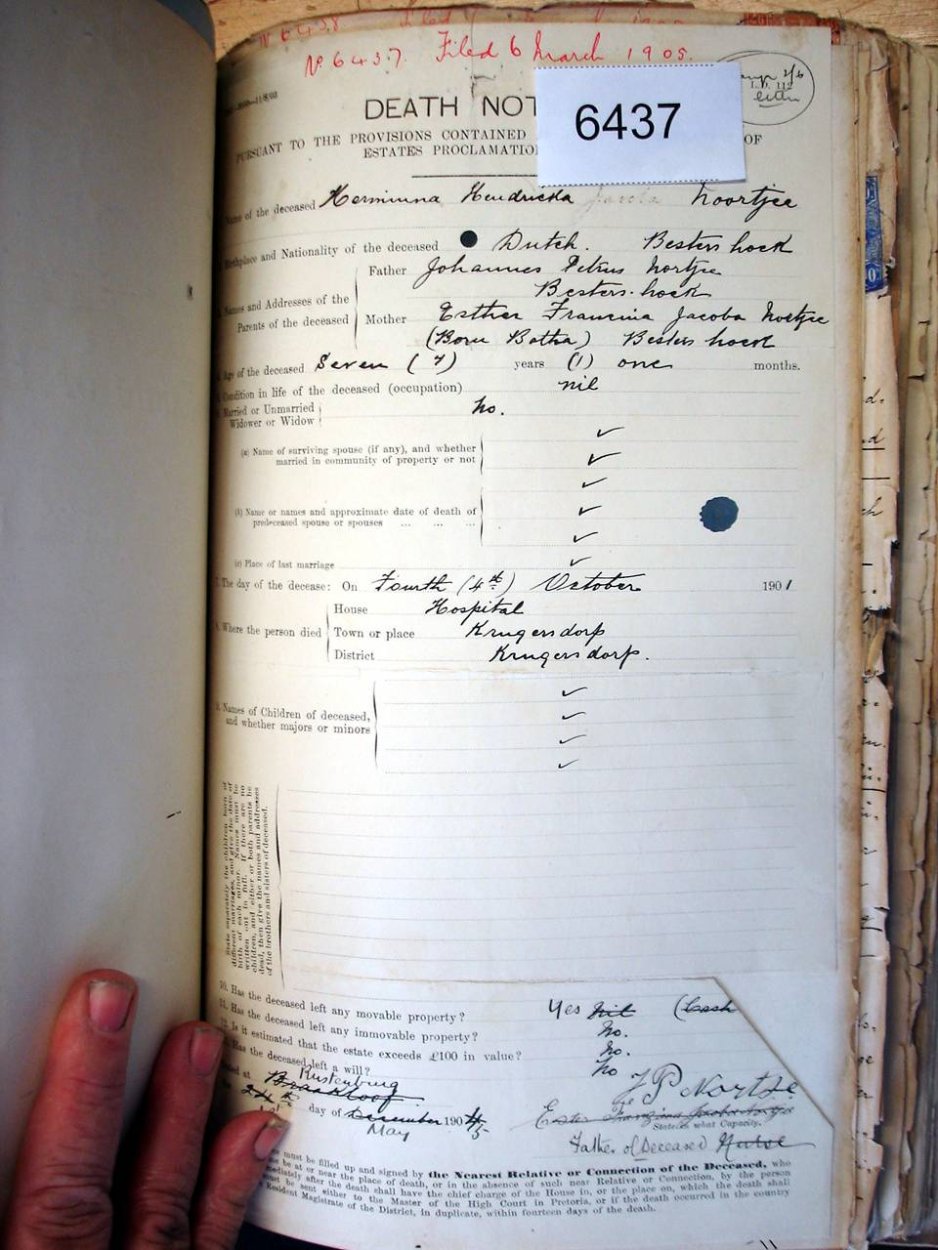 Nº 6437. Filed 6 March 1905.
6437
DEATH NOT
PURSUANT TO THE PROVISIONS CONTAINED OF
ESTATES PROCLAMATIO
Name of the deceased Hermina Hendrieka Jacoba Noortjee
Birthplace and Nationality of the deceased Dutch. Besters hoek
Names and Addresses of the Parents of the deceased
Father Johannes Petrus Nortjee
Besters-hoek
Mother Esther Francina Jacoba Nortjee
(Born Botha) Besters hoek
Age of the deceased Seven (7) years (1) one months.
Condition in life of the deceased (occupation) nil
Married or Unmarried no.
Widower or Widow
(a) Name of surviving spouse (if any), and whether
married in community of property or not
(b) Name or names and approximate date of death of
predeceased spouse or spouses ... ... ...
(c) Place of last marriage
7. The day of the decease: On Fourth (4th) October 1901
8. Where the person died
House Hospital
Town or place Krugersdorp
District Krugersdorp.
9. Names of Children of deceased,
and whether majors or minors
State separately the children born of
different marriages, and give the date of
birth of each minor. Names must be
written out in full. If there are no
children, and either or both parents be
dead, then give the names and addresses
of the brothers and sisters of deceased.
10. Has the deceased left any movable property? Yes nil (Cash
11. Has the deceased left any immovable property? No.
Is it estimated that the estate exceeds £100 in value? No.
Has the deceased left a will? No
Rustenburg
J P Nortje
24th day of December 1904/5
May
State in what Capacity.
Father of Deceased Nurse
must be filled up and signed by the Nearest Relative or Connection of the Deceased, who
be at or near the place of death, or in the absence of such near Relative or Connection, by the person
mediately after the death shall have the chief charge of the House in, or the place on, which the death shall
must be sent either to the Master of the High Court in Pretoria, or if the death occurred in the country
Resident Magistrate of the District, in duplicate, within fourteen days of the death.